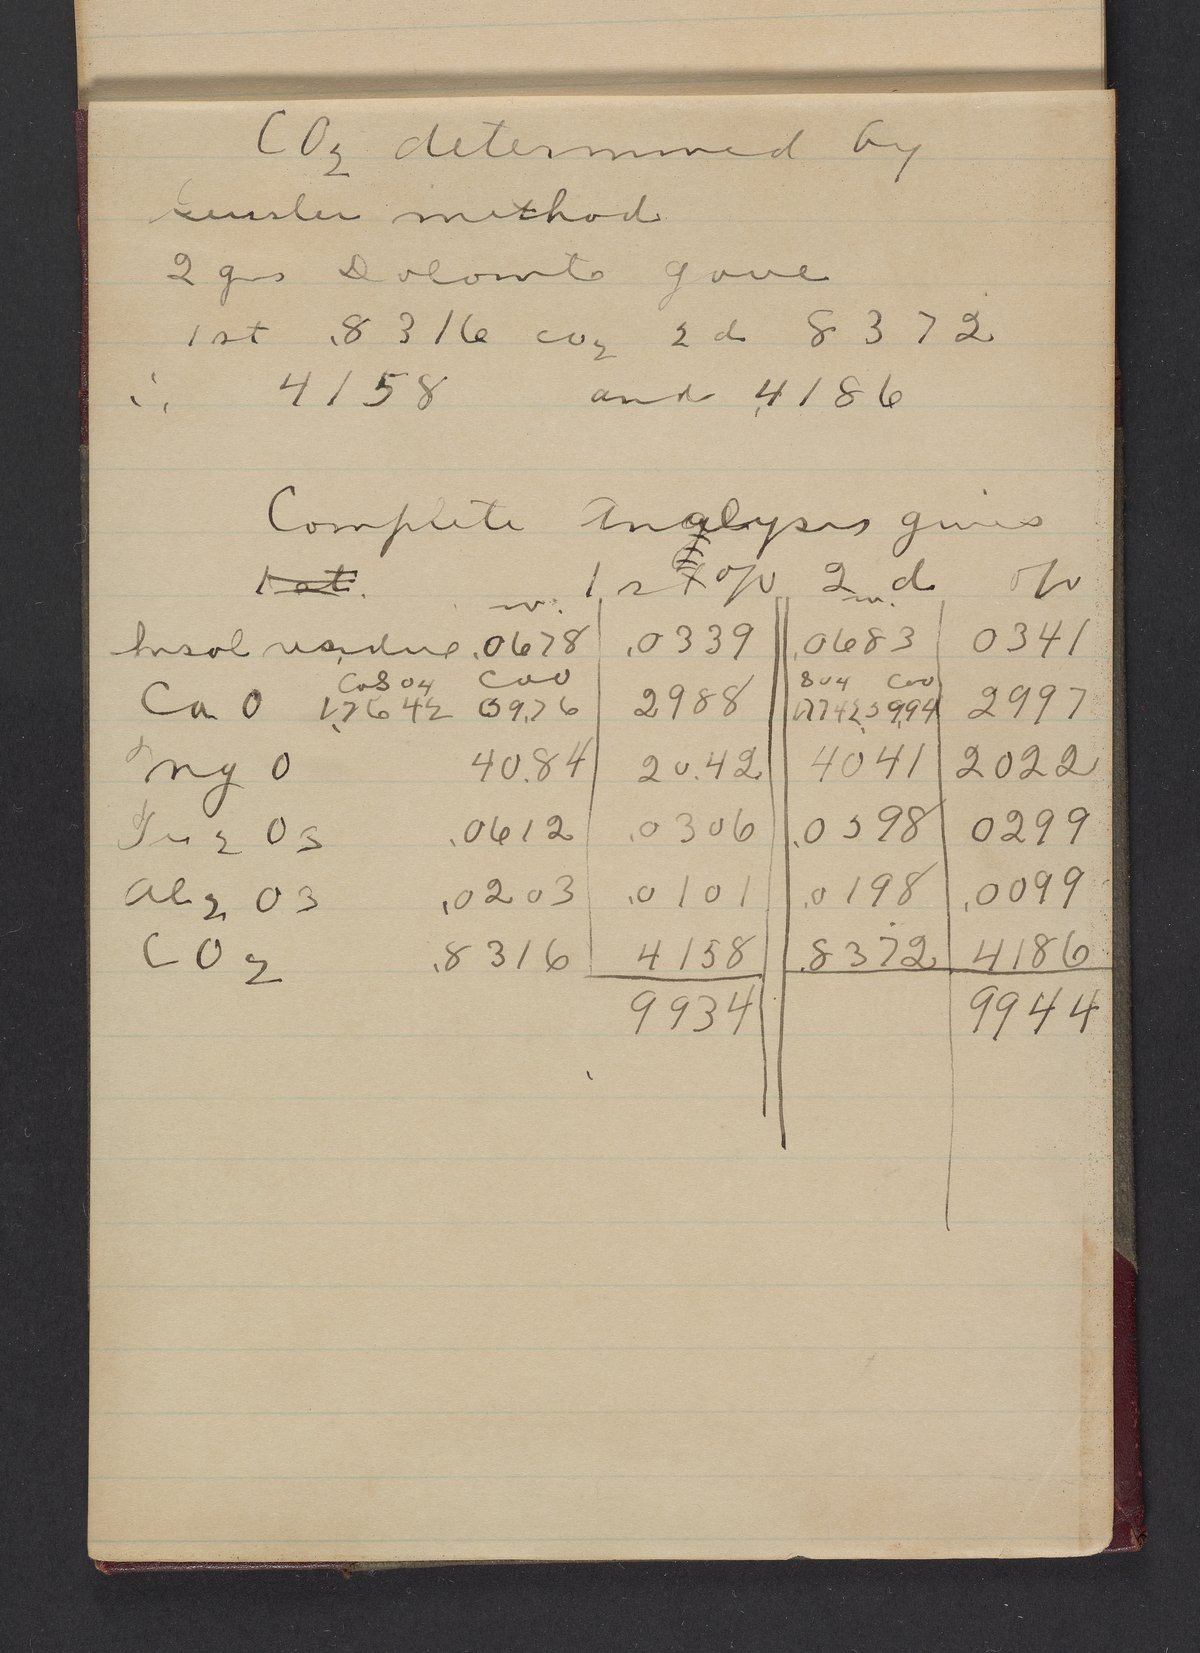 CO2 determined by
method
2 gms Dolomite gave
1st .8316 CO2 2d 8372
∴ 4158 and .4186
Complete Analysis gives
1st. 1st % 2nd %
w. w.
Insol residue .0678 .0339 .0683 0341
CaSO4 CaO SO4 CaO
CaO 1.7642 59.76 2988 1.7742 5994 2997
MgO 40.84 20.42 4041 2022
Fe2O3 .0612 .0306 .0598 0299
Al2O3 .0203 .0101 .0198 .0099
CO2 .8316 4158 .8372 4186
9934 9944